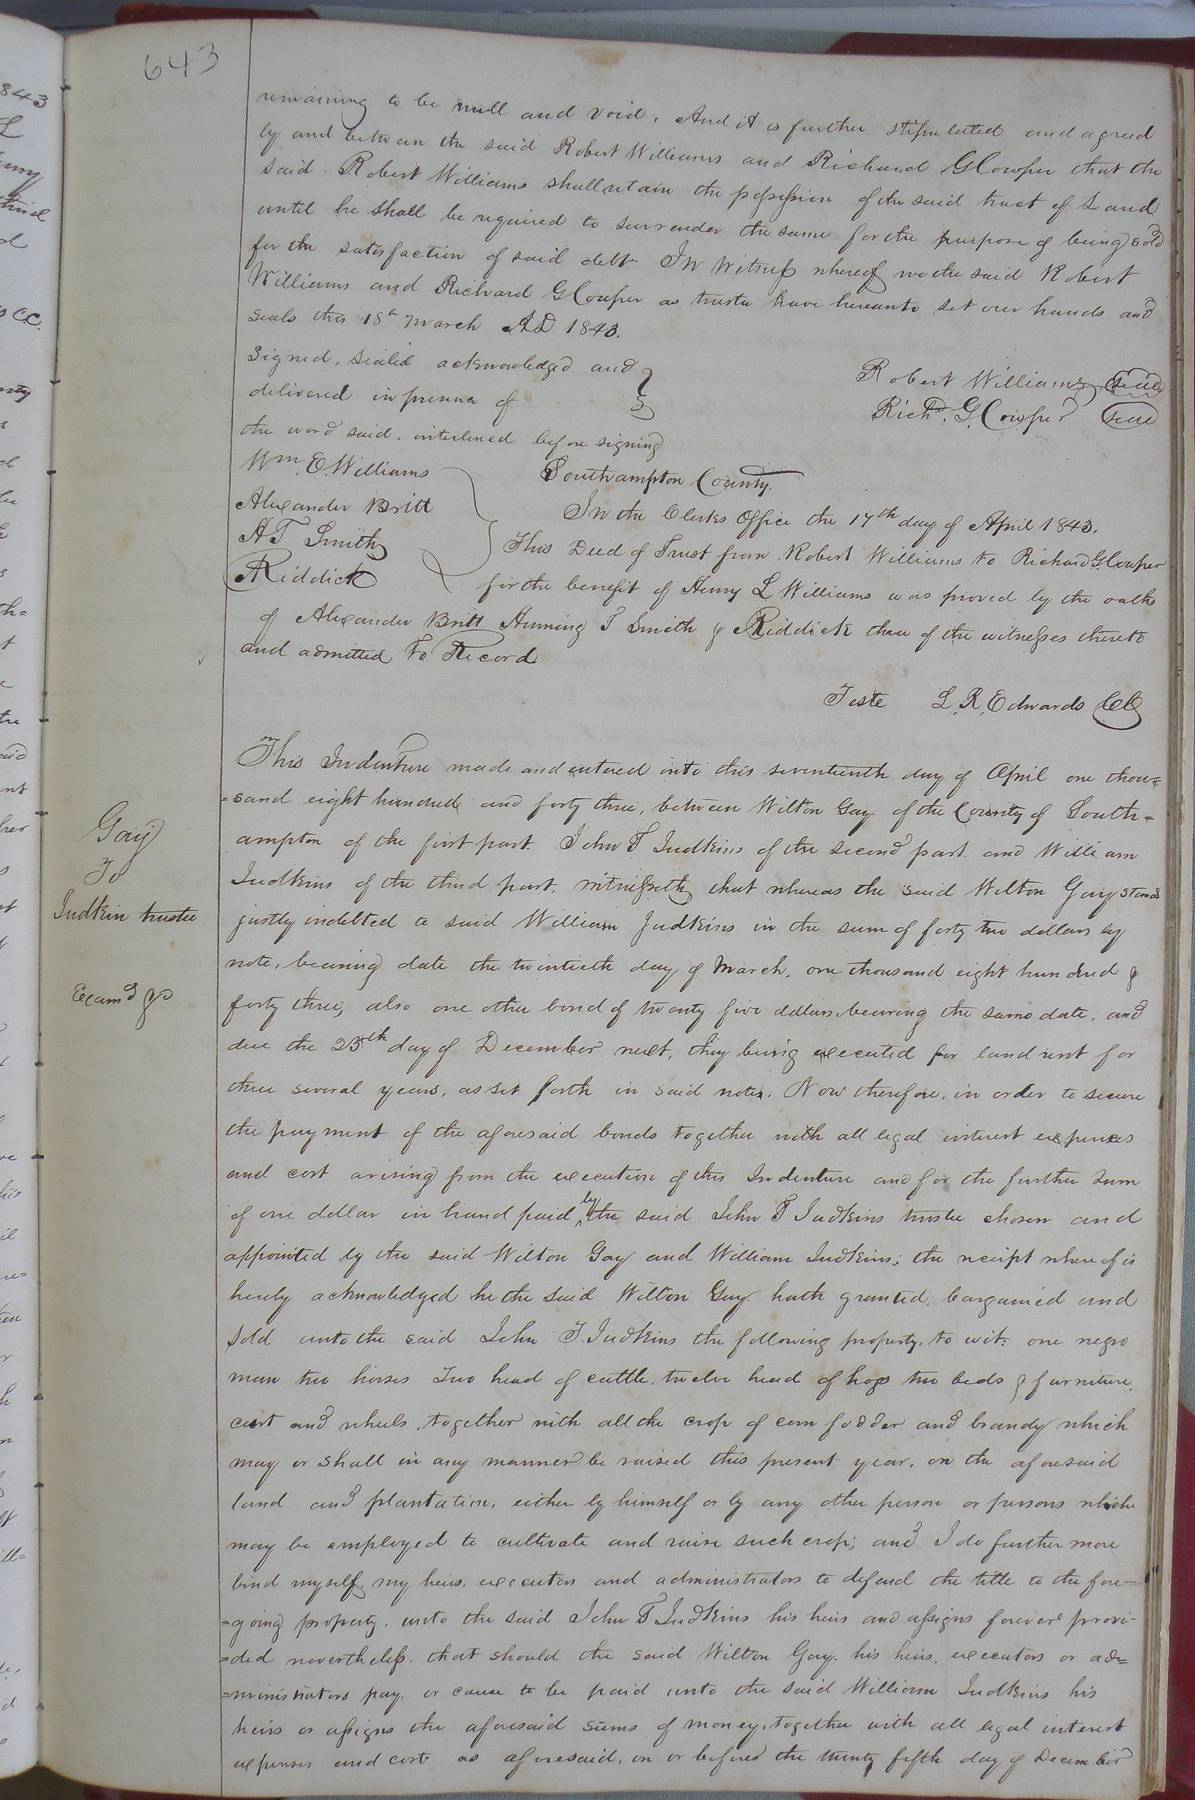 643
remaining to be null and void. And it is further stipulated and agreed
by and between the said Robert Williams and Richard G Cowper that the
said Robert Williams shall retain the possession of the said tract of Land
until he shall be required to surrender the same for the purpose of being sold
for the satisfaction of said debt In witness whereof we the said Robert
Williams and Richard G Cowper as trustee have hereunto set our hands and
seals this 18th March AD 1843.
Signed, sealed acknowledged and
delivered in presence of
the word said. interlined before signing
Robert Williams seal
Richd. G. Cowper seal
Wm. E. Williams
Alexander Britt
H T Smith
A Riddick
Southampton County.
In the Clerks Office the 17th day of April 1843.
This Deed of Trust from Robert Williams to Richard G. Cowper
for the benefit of Henry L Williams was proved by the oaths
of Alexander Britt Henning T Smith & A Riddick three of the witnesses thereto
and admitted To Record
Teste L. R. Edwards CC
Gay
To
Judkin trustee
Examd &
This Indenture made and entered into this seventeenth day of April one thou=
=sand eight hundred and forty three, between Wilton Gay of the County of South=
ampton of the first part. John T Judkins of the second part. and William
Judkins of the third part. witnesseth that whereas the said Wilton Gay stands
justly indebted to said William Judkins in the sum of forty two dollars by
note, bearing date the twentieth day of March. one thousand eight hundred &
forty three, also one other bond of twenty five dollars, bearing the same date. and
due the 25th day of December next, they being executed for land rent for
three several years, as set forth in said notes. Now therefore, in order to secure
the payment of the aforesaid bonds together with all legal interest expenses
and cost arising from the execution of this Indenture and for the further sum
of one dollar in hand paid by the said John T Judkins trustee chosen and
appointed by the said Wilton Gay and William Judkins; the receipt whereof is
hereby acknowledged he the said Wilton Gay hath granted. bargained and
sold unto the said John T. Judkins the following property, to wit: one negro
man two horses Two head of cattle. twelve head of hogs two beds & furniture,
cart and wheels, together with all the crop of corn fodder and brandy which
may or shall in any manner be raised this present year, on the aforesaid
land and plantation, either by himself or by any other person or persons which
may be employed to cultivate and raise such crop; and I do further more
bind myself, my heirs, executors and administrators to defend the title to the fore=
=going property, unto the said John T Judkins his heirs and assigns forever provi-
=ded nevertheless. that should the said Wilton Gay. his heirs. executors or ad=
=ministrators pay. or cause to be paid unto the said William Judkins his
heirs or assigns the aforesaid sums of money, together with all legal interest
expenses and costs as aforesaid, on or before the twenty fifth day of December